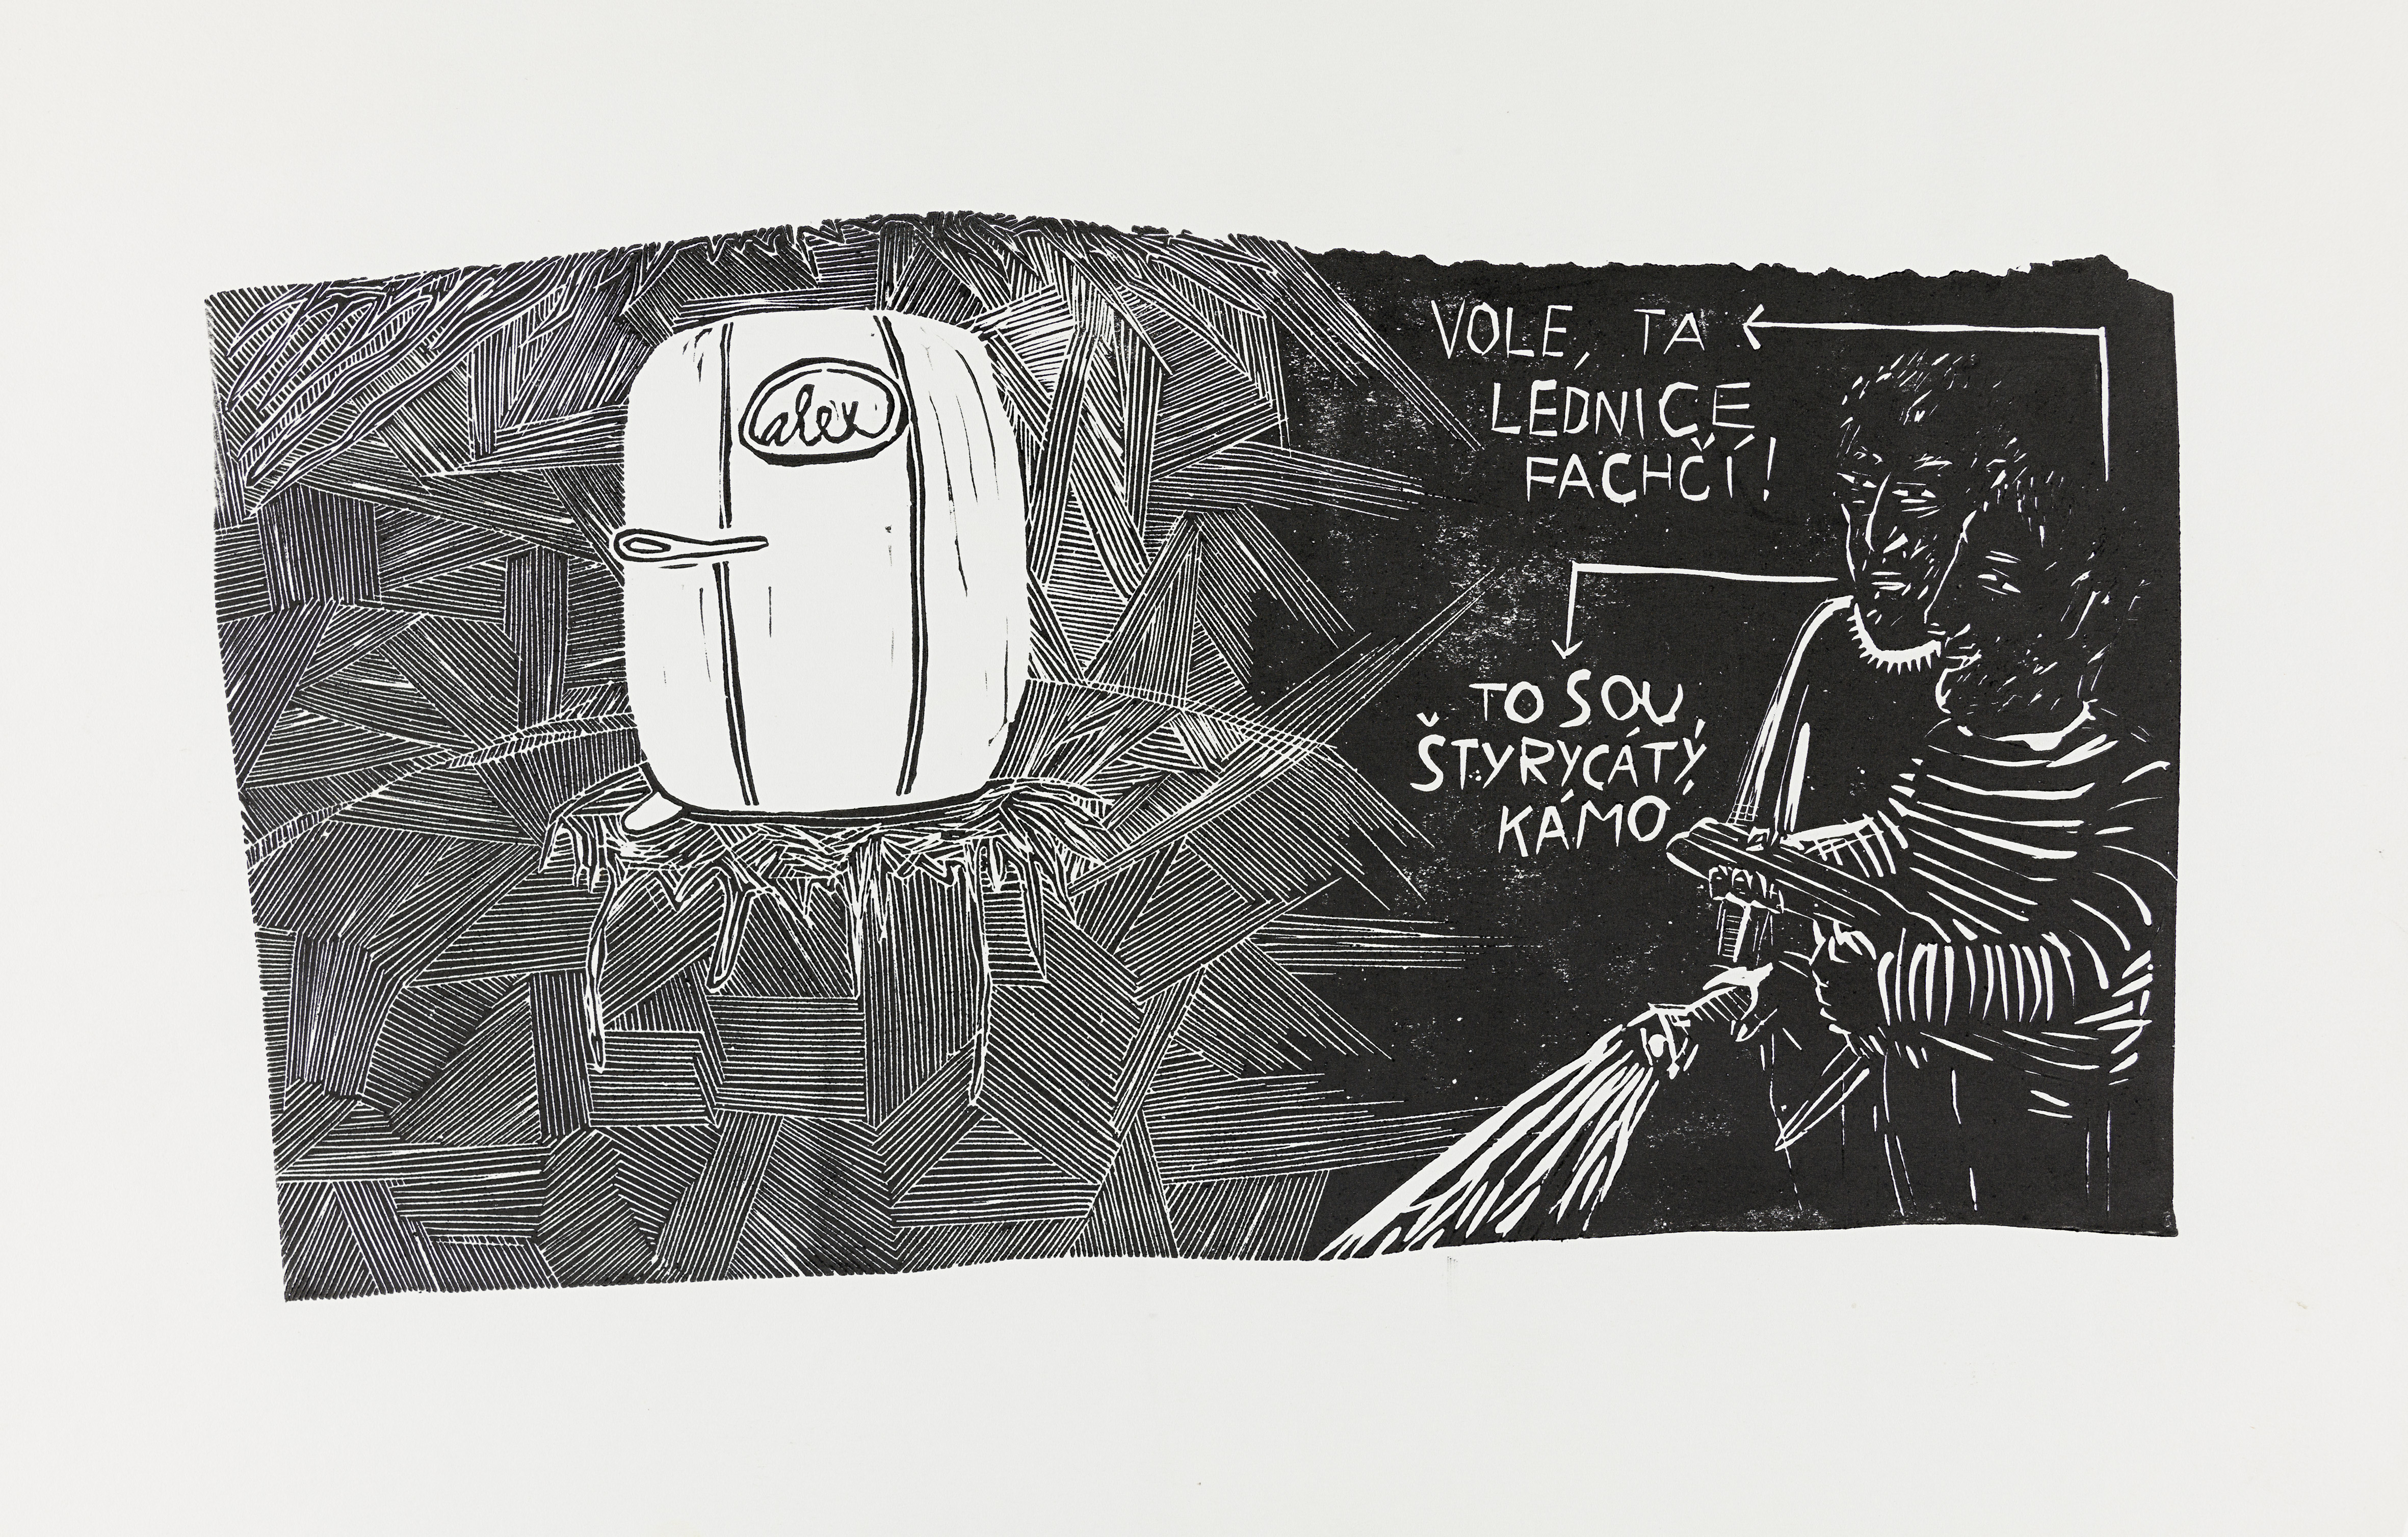 alex
VOLE, TA
LEDNICE
FACHČÍ!
TO SOU
ŠTYRYCÁTÝ,
KÁMO,